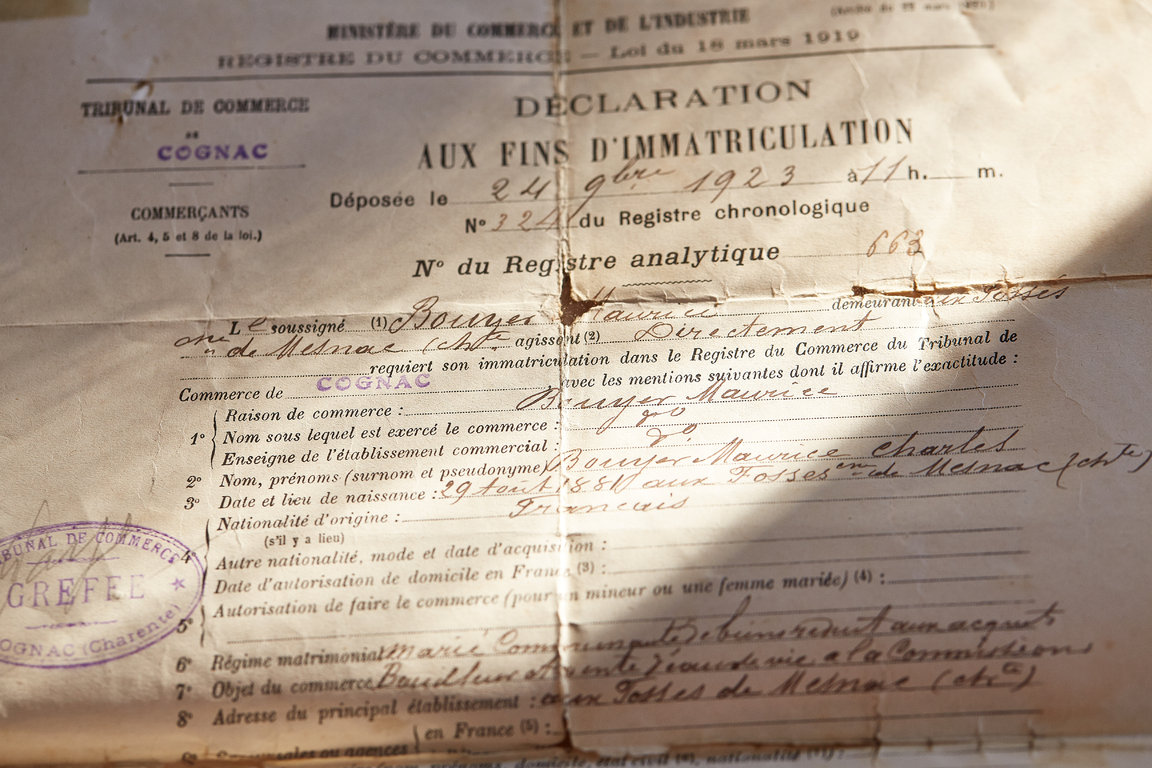 MINISTÈRE DU COMMERCE ET DE L'INDUSTRIE
REGISTRE DU COMMERCE — Loi du 18 mars 1919
TRIBUNAL DE COMMERCE
DE
COGNAC
COMMERÇANTS
(Art. 4, 5 et 8 de la loi.)
DÉCLARATION
AUX FINS D'IMMATRICULATION
Déposée le 24 9bre 1923 à 11 h. m.
No 324 du Registre chronologique
No du Registre analytique 663
Le soussigné (1) Bouyer Maurice demeurant aux Fossés
cne de Mesnac (chte agissant (2) Directement
requiert son immatriculation dans le Registre du Commerce du Tribunal de
Commerce de COGNAC avec les mentions suivantes dont il affirme l'exactitude :
1o Raison de commerce : Bouyer Maurice
Nom sous lequel est exercé le commerce : do
Enseigne de l'établissement commercial : do
2o Nom, prénoms (surnom et pseudonyme) Bouyer Maurice Charles
3o Date et lieu de naissance : 29 Août 1881 aux Fosses cne de Mesnac (chte)
4o Nationalité d'origine : Francais
(s'il y a lieu)
Autre nationalité, mode et date d'acquisition :
Date d'autorisation de domicile en France (3) :
5o Autorisation de faire le commerce (pour un mineur ou une femme mariée) (4) :
6o Régime matrimonial marié Communauté de biens reduit aux acquets
7o Objet du commerce Bouilleur et vente d'eau de vie a la Commission
8o Adresse du principal établissement : aux Fosses de Mesnac (chte)
en France (5) :
Succursales ou agences
TRIBUNAL DE COMMERCE
GREFFE
COGNAC (Charente)